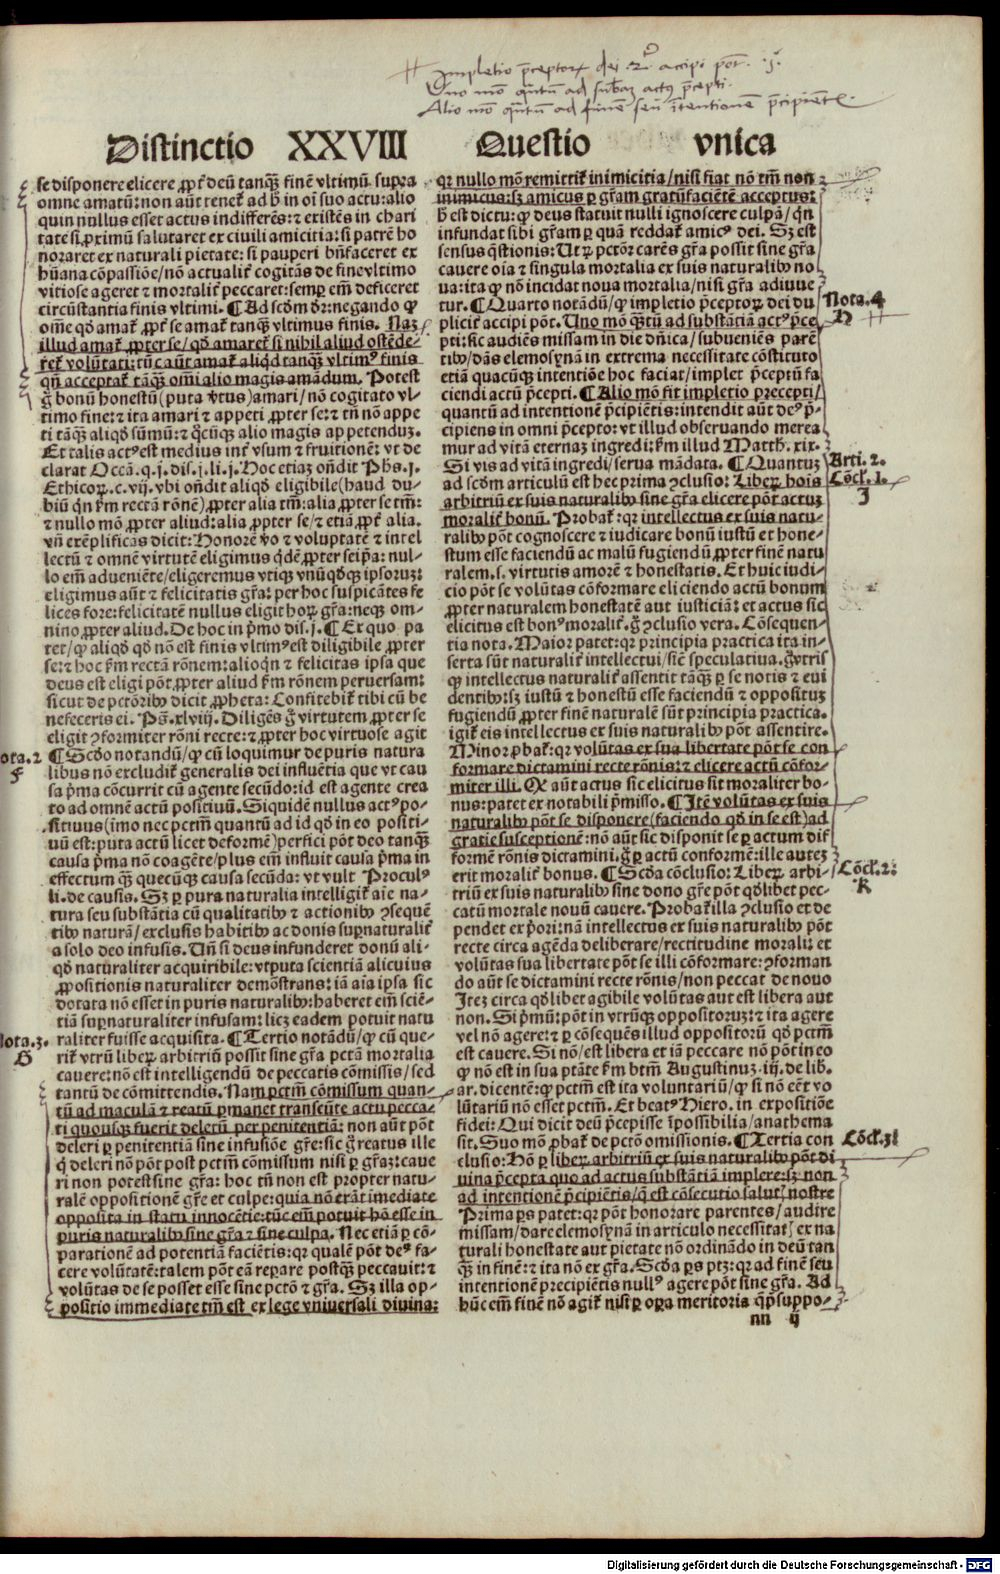 Impletio p̄ceptoꝝ dei 2ʳ accipi põt .j.
Uno mõ qũtũ ad subãz actꝰ p̄cepti.
Alio mõ qũtũ ad finē seu ītentionem p̄cipientꝭ.
Distinctio XXVIII Questio vnica
se disponere elicere ꝓpt̃ deũ tanqz̃ finẽ vltimũ. supra
omne amatũ: non aũt tenet̃ ad ħ in oĩ suo actu: alio
quin nullus esset actus indifferẽs: ⁊ existẽs in chari
tate si ꝓximũ salutaret ex ciuili amicitia: si patrẽ ho
noraret ex naturali pietate: si pauperi bñfaceret ex
hũana cõpassiõe/nõ actualiť cogitãs de fine vltimo
vitiose ageret ⁊ mortaliť peccaret: semꝑ em̃ deficeret
circũstantia finis vltimi. ¶Ad scd̃m dr̃: negando ꝙ
om̃e qđ amat̃ ꝓpt̃ se amat̃ tanqz̃ vltimus finis. Naz
illud amat̃ ꝓpter se/qđ amaret̃ si nihil aliud ostẽde-
ret̃ volũtati: tũc aũt amat̃ aliqđ tanqz̃ vltimꝰ finis
qñ acceptat̃ tãqz̃ om̃i alio magis amãdum. Potest
g̃ bonũ honestũ (puta v̓tus) amari/nõ cogitato vl-
timo fine: ⁊ ita amari ⁊ appeti ꝓpter se: ⁊ tñ nõ appe
ti tãqz̃ aliqđ sũmũ: ⁊ q̃cũqz alio magis appetenduz.
Et talis actꝰ est medius int̃ vsum ⁊ fruitionẽ: vt de
clarat Occã. q. j. dis. j. li. j. Hoc etiaz oñdit Phs. j.
Ethicoꝝ. c. vij. vbi oñdit aliqđ eligibile (haud du-
biũ q̇n ẜm rectã rõnẽ) ꝓpter alia tm̃: alia ꝓpter se tm̃:
⁊ nullo mõ ꝓpter aliud: alia ꝓpter se/⁊ etiã ꝓpt̃ alia.
vñ exẽplificãs dicit: Honorẽ ṽo ⁊ voluptatẽ ⁊ intel
lectũ ⁊ omnẽ virtutẽ eligimus qđẽ ꝓpter seip̃a: nul-
lo em̃ adueniẽte/eligeremus vtiqz vnũqđqz ipsoruz:
eligimus aũt ⁊ felicitatis gr̃a: per hoc suspicãtes fe
lices fore: felicitatẽ nullus eligit hoꝝ gr̃a: neqz om-
nino ꝓpter aliud. De hoc in p̃mo dis. j. ¶Ex quo pa
ret/ꝙ aliqđ qđ nõ est finis vltimꝰ est diligibile ꝓpter
se: ⁊ hoc ẜm rectã rõnem: alioq̇n ⁊ felicitas ipsa que
deus est eligi põt ꝓpter aliud ẜm rõnem peruersam:
sicut de pctõribꝰ dicit ꝓpheta: Confitebit̃ tibi cũ be
nefeceris ei. Ps̃. xlviij. Diligẽs g̃ virtutem ꝓpter se
eligit ꝯformiter rõni recte: ⁊ ꝓpter hoc virtuose agit
ota. 2
F
¶Scđo notandũ/ꝙ cũ loquimur de puris natura
libus nõ excludit̃ generalis dei influẽtia que vt cau
sa p̃ma cõcurrit cũ agente secũdo: id est agente crea
to ad omnẽ actũ positiuũ. Siquidẽ nullus actꝰ po-
sitiuus (ĩmo nec pctm̃ quantũ ad id qđ in eo positi-
uũ est: puta actũ licet deformẽ) perfici põt deo tanqz̃
causa p̃ma nõ coagẽte/plus em̃ influit causa p̃ma in
effectum qz̃ quecũqz causa secũda: vt vult Proculꝰ
li. de causis. Sz ꝑ pura naturalia intelligit̃ aĩe na-
tura seu substãtia cũ qualitatibꝰ ⁊ actionibꝰ ꝯsequẽ
tibꝰ naturã/exclusis habitibꝰ ac donis suꝑnaturaliť
a solo deo infusis. Uñ si deus infunderet donũ ali-
qđ naturaliter acquiribile: vtputa scientiã alicuius
ꝓpositionis naturaliter demõstrans: iã aia ipsa sic
dotata nõ esset in puris naturalibꝰ: haberet em̃ sciẽ-
tiã suꝑnaturaliter infusam: licz eadem potuit natu
raliter fuisse acquisita. ¶Tertio notãdũ/ꝙ cũ que-
lota. 3.
G
rit̃ vtrũ liberꝝ arbitriũ possit sine gr̃a pctã mortalia
cauere: nõ est intelligendũ de peccatis cõmissis/sed
tantũ de cõmittendis. Nam pctm̃ cõmissum quan-
tũ ad maculã ⁊ reatũ ꝑmanet transeũte actu pecca-
ti quousqz fuerit deletũ per penitentiã: non aũt põt
deleri ꝑ penitentiã sine infusiõe gr̃e: sic g̃ reatus ille
q̇ deleri nõ põt post pctm̃ cõmissum nisi ꝑ gr̃az: caue
ri non potest sine gr̃a: hoc tñ non est propter natu-
ralẽ oppositionẽ gr̃e et culpe: quia nõ erãt imediate
opposita in statu innocẽtie: tũc em̃ potuit hõ esse in
puris naturalibꝰ sine gr̃a ⁊ sine culpa. Nec etiã ꝑ cõ-
parationẽ ad potentiã faciẽtis: qr qualẽ põt deꝰ fa-
cere volũtatẽ: talem põt eã reꝑare postqz̃ peccauit: ⁊
volũtas de se posset esse sine pctõ ⁊ gr̃a. Sz illa op-
positio immediate tm̃ est ex lege vniuersali diuina:
qr nullo mõ remittit̃ inimicitia/nisi fiat nõ tm̃ non
inimicus: sz amicus ꝑ gr̃am gratũfaciẽtẽ acceptus:
ħ est dictu: ꝙ deus statuit nulli ignoscere culpã/q̇n
infundat sibi gr̃am ꝑ quã reddat̃ amicꝰ dei. Sz est
sensus q̃stionis: Ut ꝑ pctõr carẽs gr̃a possit sine gr̃a
cauere oĩa ⁊ singula mortalia ex suis naturalibꝰ no
ua: ita ꝙ nõ incidat noua mortalia/nisi gr̃a adiuue
tur. ¶Quarto notãdũ/ꝙ impletio p̃ceptoꝝ dei du
Nota. 4
H
pliciť accipi põt. Uno mõ qz̃tũ ad substãtiã actꝰ p̃ce
pti: sic audiẽs missam in die dñica/subueniẽs parẽ
tibꝰ/dãs elemosynã in extrema necessitate cõstituto
etiã quacũqz intentiõe hoc faciat/implet p̃ceptũ fa
ciendi actũ p̃cepti. ¶Alio mõ fit impletio precepti/
quantũ ad intentionẽ p̃cipiẽtis: intendit aũt deꝰ p̃-
cipiens in omni p̃cepto: vt illud obseruando merea
mur ad vitã eternaz ingredi: ẜm illud Matth. xix.
Si vis ad vitã ingredi/serua mãdata. ¶Quantuz
Arti. 2.
ad scđm articulũ est hec prima ꝯclusio: Liberꝝ hoĩs
Cõcl̃. 1.
J
arbitriũ ex suis naturalibꝰ sine gr̃a elicere põt actuz
moraliť bonũ. Probat̃: qr intellectus ex suis natu-
ralibꝰ põt cognoscere ⁊ iudicare bonũ iustũ et hone-
stum esse faciendũ ac malũ fugiendũ ꝓpter finẽ natu
ralem. s. virtutis amorẽ ⁊ honestatis. Et huic iudi-
cio põt se volũtas cõformare eliciendo actũ bonum
ꝓpter naturalem honestatẽ aut iusticiã: et actus sic
elicitus est bonꝰ moraliť. g̃ ꝯclusio vera. Cõsequen-
tia nota. Maior patet: qr principia practica ita in-
serta sũt naturaliť intellectui/sicẽ speculatiua. g̃ ṽtris
ꝙ intellectus naturaliť assentit tãqz̃ ꝑ se notis ⁊ eui
dentibꝰ: sz iustũ ⁊ honestũ esse faciendũ ⁊ oppositũz
fugiendũ ꝓpter finẽ naturalẽ sũt principia practica.
igit̃ eis intellectus ex suis naturalibꝰ põt assentire.
Minor ꝓbat̃: qr voluntas ex sua libertate põt se con
formare dictamini recte rõnis: ⁊ elicere actũ cõfor-
miter illi. Qz aũt actus sic elicitus sit moraliter bo-
nus: patet ex notabili p̃misso. ¶Itẽ volũtas ex suis
naturalibꝰ põt se disponere (faciendo qđ in se est) ad
gratie susceptionẽ: nõ aũt sic disponit se ꝑ actum dif
formẽ rõnis dictamini. g̃ ꝑ actũ conformẽ: ille autez
erit moraliť bonus. ¶Scđa cõclusio: Liberꝝ arbi-
Cõcl̃. 2:
K
triũ ex suis naturalibꝰ sine dono gr̃e põt qđlibet pec-
catũ mortale nouũ cauere. Probat̃ illa ꝯclusio et de
pendet ex p̃ori: nã intellectus ex suis naturalibꝰ põt
recte circa agẽda deliberare/rectitudine morali: et
volũtas sua libertate põt se illi cõformare: ꝯforman
do aũt se dictamini recte rõnis/non peccat de nouo
Itez circa qđlibet agibile volũtas aut est libera aut
non. Si p̃mũ: põt in vtrũqz oppositoruz: ⁊ ita agere
vel nõ agere: ⁊ ꝑ cõsequẽs illud oppositorũ qđ pctm̃
est cauere. Si nõ/est libera et iã peccare nõ põt in eo
ꝙ nõ est in sua ptãte ẜm btm̃ Augustinuz. iij. de lib.
ar. dicentẽ: ꝙ pctm̃ est ita voluntariũ/ꝙ si nõ eẽt vo
lũtariũ non esset pctm̃. Et beatꝰ Hiero. in expositiõe
fidei: Qui dicit deũ p̃cepisse ĩpossibilia/anathema
sit. Suo mõ ꝓbat̃ de pctõ omissionis. ¶Tertia con
Cõcl̃. 3
clusio: Hõ ꝑ liberꝝ arbitriũ ex suis naturalibꝰ põt di
uina p̃cepta quo ad actus substãtiã implere: sz non
ad intentionẽ p̃cipiẽtis/q̃ est cõsecutio salutꝭ nostre
Prima ps patet: qr põt honorare parentes/audire
missam/dare elemosynã in articulo necessitatꝭ ex na
turali honestate aut pietate nõ ordinãdo in deũ tan
qz̃ in finẽ: ⁊ ita nõ ex gr̃a. Scđa ps ptz: qr ad finẽ seu
intentionẽ precipiẽtis nullꝰ agere põt sine gr̃a. Ad
hũc em̃ finẽ nõ agit̃ nisi ꝑ oꝑa meritoria q̃ p̃suppo-
nn ij
Digitalisierung gefördert durch die Deutsche Forschungsgemeinschaft - DFG